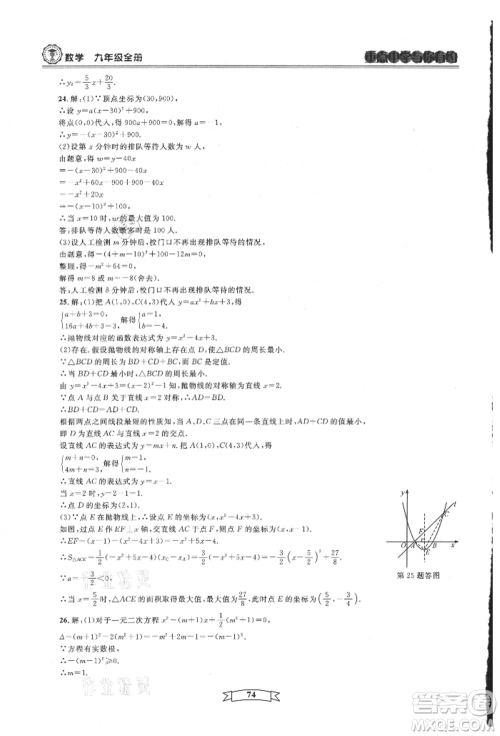 数学 九年级全册
∴y₂=5/3x+20/3.
24.解:(1)∵顶点坐标为(30,900),
∴设 y=a(x-30)²+900,
将点(0,0)代入,得 a=-1,
∴y=-(x-30)²+900.
(2)设第 x 分钟时的排队等待人数为 w 人,
由题意,得 w=y-40x
=-(x-30)²+900-40x
=-x²+60x-900+900-40x
=-x²+20x
=-(x-10)²+100,
∴当 x=10 时,w的最大值为 100.
答:排队等待人数最多时是 100 人.
(3)设人工检测 m 分钟后,校门口不再出现排队等待的情况,
由题意,得
整理,得 -m²+64=0,
解得 m=8 或 m=-8(舍去).
答:人工检测 8 分钟后,校门口不再出现排队等待的情况.
25.解:(1)把 A(1,0),C(4,3)代入 y=ax²+bx+3,得
{a+b+3=0, 16a+4b+3=3, 解得{a=1, b=-4,
∴抛物线对应的函数表达式为 y=x²-4x+3.
(2)存在.如图,在抛物线的对称轴上存在点 D,使△BCD 的周长最小.
∵△BCD 的周长=BD+CD+BC,且 BC 的长为定值,
∴当 BD+CD 的值最小时,△BCD 的周长最小.
由 y=x²-4x+3=(x-2)²-1 知,抛物线的对称轴为直线 x=2,
∵点 A 与点 B 关于直线 x=2 对称,
根据两点之间线段最短的原理,知 A、D、C 三点共线时△BCD 的周长最小,
即 D 为直线 AC 与直线 x=2 的交点.
设直线 AC 的表达式为 y=mx+n,
∴{m+n=0, 4m+n=3, 解得{m=1, n=-1,
∴直线 AC 的表达式为 y=x-1,
当 x=2 时,y=1,∴点 D 的坐标为(2,1).
(3)∵点 E 在抛物线上,∴设点 E 的坐标为(x,x²-4x+3).
如图,过点 E 作 x 轴的垂线,交直线 AC 于点 F,则点 F 的坐标为(x,x-1),
∴EF=(x-1)-(x²-4x+3)=-x²+5x-4,
∴S△ACE=1/2(-x²+5x-4)(x_C-x_A)=3/2(-x²+5x-4)=-3/2(x-5/2)²+27/8.
∵a=-3/2<0,
∴当 x=5/2 时,△ACE 的面积取得最大值,最大值为27/8,此时点 E 的坐标为(5/2,-3/4).
第 25 题答图
26.解:(1)对于一元二次方程 x²-(m+1)x+1/2(m²+1)=0,
Δ=(m+1)²-2(m²+1)=-m²+2m-1=-(m-1)²,
∵方程有实数根,
∴-(m-1)²≥0,
∴m=1.
74
作业精灵
作业精灵
答案圈
MXQE.COM